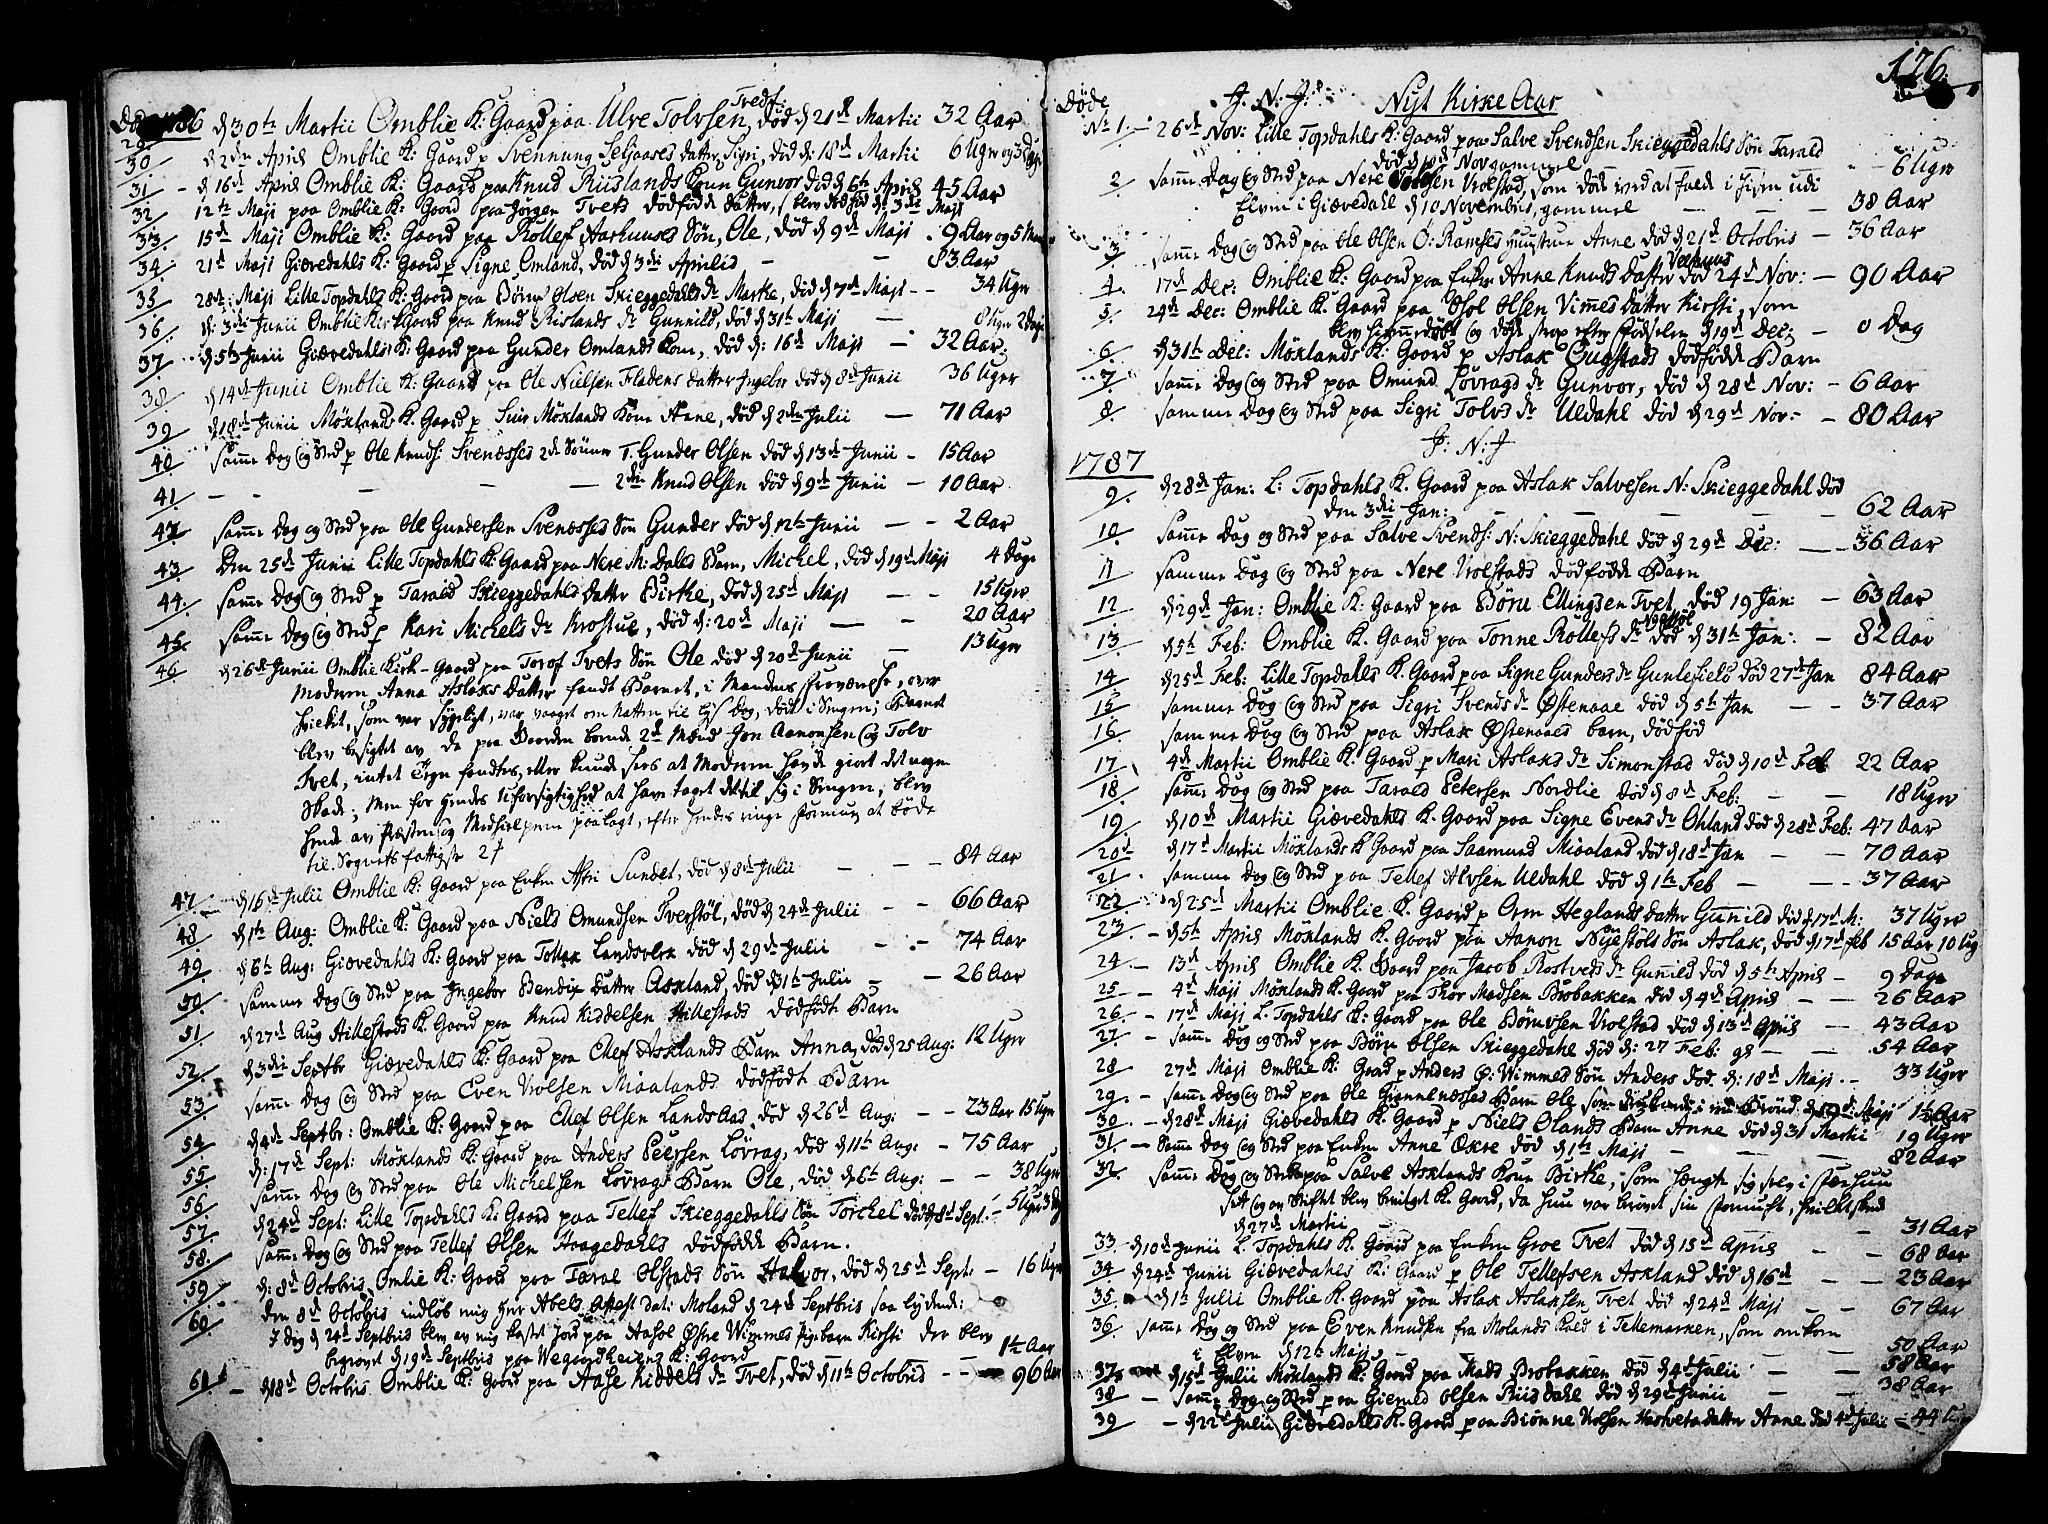 Døde 1786
Tvedt
29 d 30te Martii Omblie K: Gaard paa Ulve Tolvsen, død d 21d Martii 32 Aar
30 d 2den April Omblie K: Gaard p Svennung Seljaases datter, Sigri, død d: 18d Martii 6 Uger og 3 Dage
31 - d 16d April Omblie K: Gaard paa Knud Riislands Konn Gunvor død d 6th April 45 Aar
32 12te Maji paa Omblie K: Gaard paa Jørgen Tvets dødfødde datter, blev dødfød d: 3di Maji
33 15d Maji Omblie K: Gaard paa Rollef Aarhuuses Søn, Ole, død d 9d Maji 9 Aar og 5
34 21d Maji Giævedahls K: Gaard p Signe Omland, død d 3di Aprilis - - 83 Aar
35 28d: Maji Lille Topdahls K: Gaard paa Børne Olsen Skieggedahls dr Marthe, død d 7d Maji - - 34 Uger
36 d: 3di Junii Omblie Kirkgaard paa Knud Riislands dr Gunnild, død d 31te Maji - 8 Uger 2 Dage
37 d 5te Junii Giævedahls K: Gaard paa Gunder Omlands Kone, død d: 16d Maji - 32 Aar
38 d 14d Junii Omblie K: Gaard paa Ole Nielsen Fladens datter Ingebor død d 8d Junii 36 Uger
39 d 18d Junii Möklands K. Gaard p Siur Möklands Kone Anne, død d 2den Julii - 71 Aar
40 Samme Dag og Sted p Ole Knuds: Svenæsses 2de Sønner 1. Gunder Olsen død d 13d Junii - 15 Aar
41 - - - - - 2den Knud Olsen død d 9d Junii - 10 Aar
42 Samme Dag og Sted paa Ole Gundersen Svenæsses Søn Gunder død d 12te Junii - - 2 Aar
43 Den 25d Junii Lille Topdahls K: Gaard paa Nere M: Dales Barn, Michel, død d 19d Maji 4 Dage
44 Samme Dag og Sted p Tarald Skieggedahls datter Birthe, død d 25d Maji - - 15 Uger
45 Samme Dag og Sted p Kari Michels dr Krostue, død d: 20d Maji - - 20 Aar
46 d 26d Junii Omblie Kirk-Gaard paa Torof Tvets Søn Ole død d 20d Junii - 13 Uger
Moderen Anna Aslaks datter fandt Barnet, i Mandens fraværelse, over
hvilket, som var sygeligt, var vaaget om natten til lys Dag, dødt i Sengen; Barnet
blev besigtet av de paa Gaarden boende 2de Mænd Jon Aanonsen og Tolv
Tvet, intet Tegn fandtes, eller kunde sees at Moderen havde giort det nogen
Skade; Men for hendes Uforsigtighed at have taget det til sig i Sengen, blev
hende av Præsten og Medhielpere paalagt, efter hendes ringe Formue at bøde
til Sognets fattigste 2
47 d 16d Julii Omblie K: Gaard paa Enken Astri Sundet, død d 8d Julii - - - 84 Aar
48 d 1te Aug: Omblie K: Gaard paa Niels Omundsen Tverstøl, død d 24d Julii - - 66 Aar
49 d 6th Aug: Giævedahls K: Gaard paa Tollak Landsverk død d 29d Julii - - 74 Aar
50 Samme Dag og Sted paa Ingebor Bendix datter Askland, død d 31te Julii - - 26 Aar
51 d 27d Aug Hillestads K: Gaard paa Knud Kiddelsen Hillestads dødfødt Barn
52 d 3di Septbr Giævedahls K: Gaard paa Ellef Asklands Barn Anna, død d 25 Aug: 12 Uger
53 Samme Dag og Sted paa Even Vrolsen Miaalands dødfødt Barn
54 d 4d Septbr: Omblie K: Gaard paa Ellef Olsen Landsaas, død d 26d Aug: - - 23 Aar 15 Uger
54 d: 17d Sept: Möklands K: Gaard paa Anders Peersen Løvrag, død d 11te Aug: - 75 Aar
55 Samme Dag og Sted paa Ole Michelsen Løvrags Barn Ole, død d 6te Aug: - - 38 Uger
56 d 24d Sept: Lille Topdahls K: Gaard paa Tellef Skieggedahls Søn Torchel død d 8d Sept: - 5 Uger 3
57 Samme Dag og Sted paa Tellef Olsen Haagedahls dødfødde Barn.
58 d: 8d Octobris Omlie K: Gaard paa Taral Olstads Søn Halvor, død d 25d Sept: - 16 Uger
59 Den 8d Octobris indløb mig Herr Abels Attest dat: Moland d 24d Septbris saa lydende:
60 I dag d 24d Septbris blev av mig kastet Jord paa Aasol Østre Wimmes Pigebarn Kirsti der blev
begravet d 19d Septbris paa Wegaardheiens K: Gaard - 1½ Aar
61 - d 18d Octobris Omblie K: Gaard paa Aase Kiddels dr Tvet, død d 11te Octobris - - 96 Aar
126
Døde J: N: J: Nyt Kirke Aar
No 1 - 26d Nov: Lille Topdahls K: Gaard paa Salve Svendsen Skieggedahls Søn Tarald
død d 10d Nov gammel - - - 6 Uger
2 Samme Dag og Sted paa Nere Tolvsen Vrolstad, som døde ved at falde i Isen udi
Elven i Giævedahl d 10 Novembris, gammel - - - 38 Aar
3 Samme Dag og Sted paa Ole Olsen O: Ramses Huustrue Anne død d 21d Octobris - 36 Aar
4 17d Dec: Omblie K: Gaard paa Enken Anne Knuds datter død 24d Nov: - 90 Aar
5 24d Dec: Omblie K: Gaard paa Osol Olsen Vimmes datter Kirsti, som
blev hiemmedøbt og døde strax efter Fødselen d 19d Dec: - 0 Dag
6 d 31te Dec: Möklands K: Gaard p Aslak Ougstads dødfødde Barn
7 Samme Dag og Sted paa Omund Løvrags dr Gunvor, død d 28d Nov: - 6 Aar
8 Samme Dag og Sted paa Sigri Tolvs dr Ueldahl død d 29d Nov: - 80 Aar
J: N: J
1787
9 d 28d Jan: L: Topdahls K. Gaard paa Aslak Salvesen N: Skieggedahl død
den 3di Jan: - - - - 62 Aar
10 Samme Dag og Sted paa Salve Svends: N: Skieggedahl død d 29d Dec: - - 36 Aar
11 Samme Dag og Sted paa Nere Vrolstads dødfødde Barn
12 d 29d Jan: Omblie K: Gaard paa Børu Ellingsen Tvet, død 19 Jan: - 63 Aar
13 d 5te Feb: Omblie K: Gaard paa Tonne Rollefs dr død d 31te Jan: - 82 Aar
14 d 25d Feb: Lille Topdahls K: Gaard paa Signe Gunders dr Gunlefielo død 27d Jan 84 Aar
15 Samme Dag og Sted paa Sigri Svends dr Østenaae død d 5te Jan - - 37 Aar
16 Samme Dag og Sted paa Aslak Østenaaes barn, dødfød
17 4d Martii Omblie K: Gaard p Mari Aslaks dr Simonstad død d 10d Feb 22 Aar
18 Samme Dag og Sted paa Tarald Petersen Nordlie død d 8d Feb: - - 18 Uger
19 d 10d Martii Giævedahls K. Gaard paa Signe Evens dr Ohland død d 28d Feb: 47 Aar
20 d 17d Martii Möklands K Gaard paa Saamund Miaaland død d 18d Jan - - 70 Aar
21 Samme Dag og Sted paa Tellef Alvsen Uldahl død d 1te Feb - - - 37 Aar
22 d 25d Martii Omblie K. Gaard p Orm Heglands datter Gunild død d 17d M: 37 Uger
23 - d 5te April Möklands K: Gaard paa Aanon Nyestøls Søn Aslak, død d 17d feb 15 Aar 10 Ug
24 - 13d April Omblie K. Gaard paa Jacob Rostveds dr Gunnild død d 5te April - 9 Dage
25 - 4d Maji Möklands K: Gaard paa Thor Madsen Brobakken død d 4d April - - 26 Aar
26 - 17d Maji L. Topdahls K: Gaard paa Ole Børuvsen Vrolstad død d 13d April - 43 Aar
27 - Samme Dag og Sted paa Børu Olsen Skieggedahl død d: 27 Feb: - - 54 Aar
28 27d Maji Omblie K: Gaard p Anders Ø: Wimmes Søn Anders død d: 18d Maji - 33 Uger
29 - Samme Dag og Sted paa Ole Giennenæsses Barn Ole som druknede i en Brønd d 19d Maji 1½ Aar
30 - d 28d Maji Giævedahls K: Gaard p Niels Olands Barn Anne død d 31 Martii 19 Uger
31 - Samme Dag og Sted paa Enken Anne Oxre død d 1te Maji - - - 82 Aar
32 Samme Dag og Sted paa Salve Asklands Kone Birthe, som hængte sig selv i
Sat og av Stiftet blev bevilget K. Gaard, da hun var berøvet sin Fornuft, hvilket skeed
d 27d Martii - - - 31 Aar
33 d 10d Junii L. Topdahls K. Gaard paa Enken Groe Tvet død d 15d April - - 68 Aar
34 d 24d Junii Giævedahls K: Gaard p Ole Tellefsen Askland død d 16d - - 23 Aar
35 d 1te Julii Omblie K. Gaard paa Aslak Aslaksen Tvet død d 24d Maji - - 67 Aar
36 Samme Dag og Sted paa Even Knudsen fra Molands Præstegield i Tellemarken, som omkom
i Elven d 12te Maji - - - 50 Aar
37 d 15d Julii Möklands K: Gaard paa Mads Brobakken død d 4d Julii - - 58 Aar
38 - Samme Dag og Sted paa Giermund Olsen Riisdahl død d 29d Junii - - 38 Aar
39 - d 22d Julii Giævedahls K. Gaard paa Biønne Vrolsen datter Anne død 4d Julii - 44